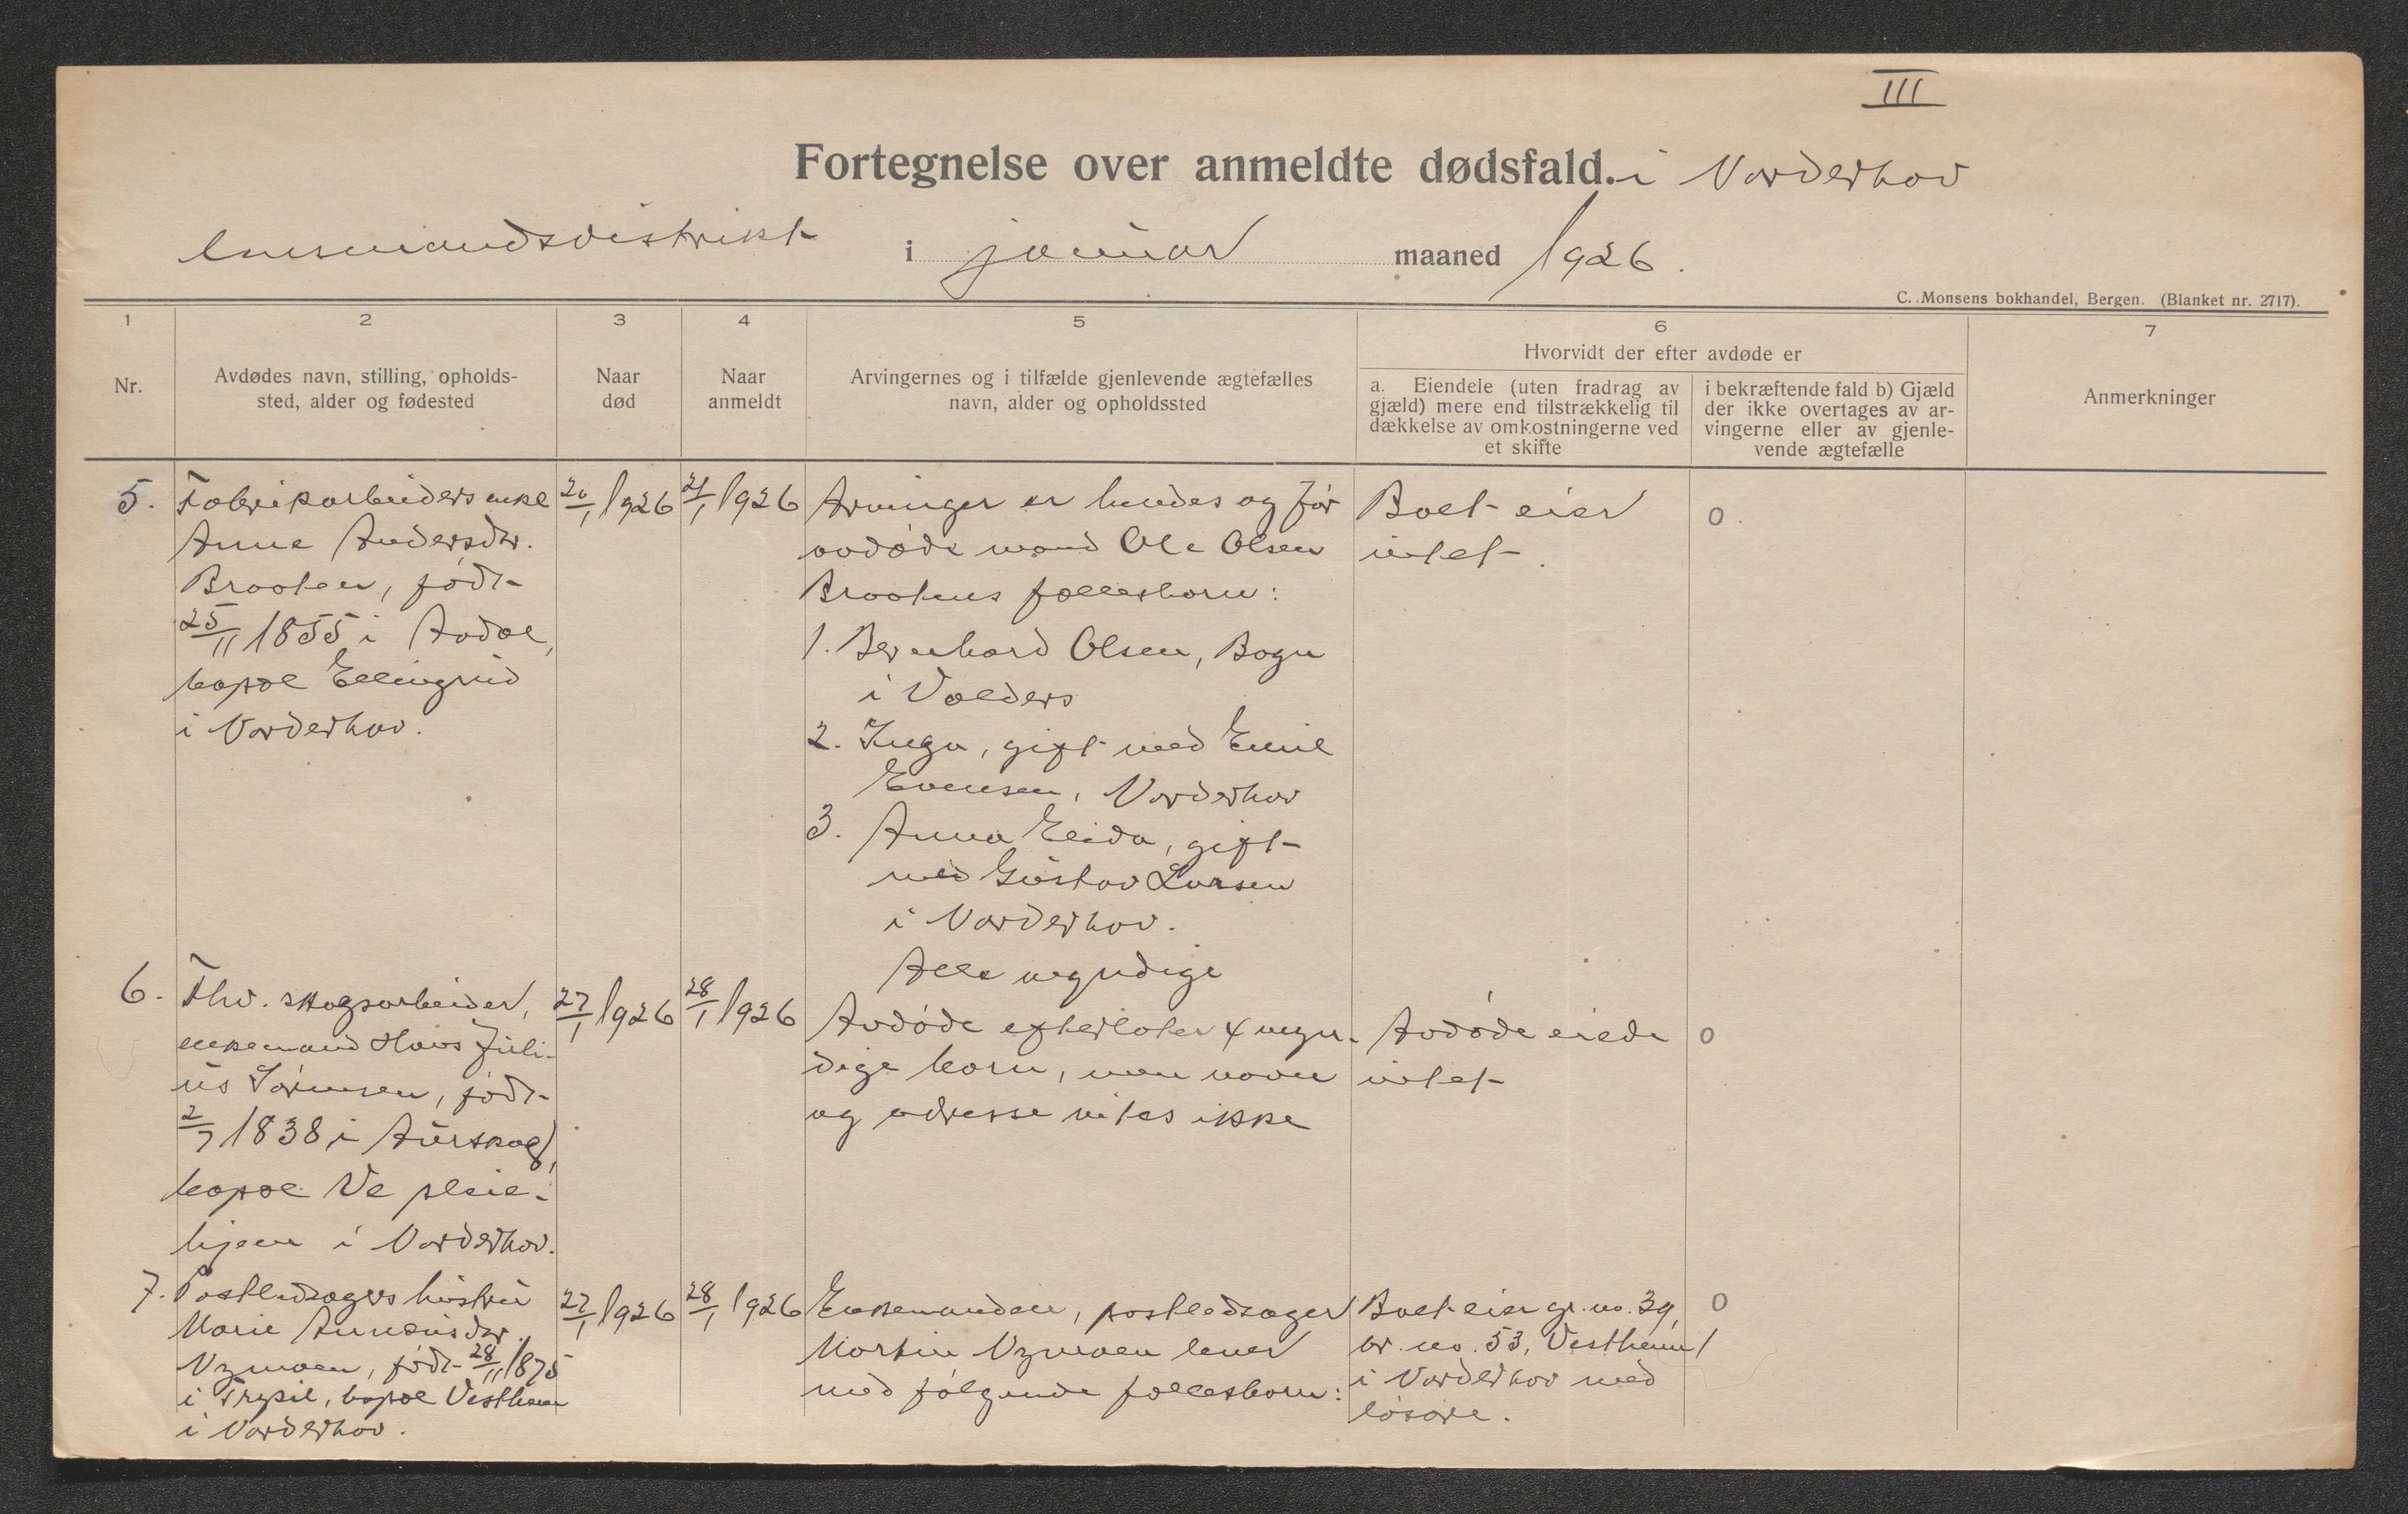 III
Fortegnelse over anmeldte dødsfald. i Norderhov
lensmandsdistrikt i januar maaned 1926.
C. Monsens bokhandel, Bergen. (Blanket nr. 2717).
1 2 3 4 5 6 7
Nr.
Avdødes navn, stilling, opholds-
sted, alder og fødested
Naar
død
Naar
anmeldt
Arvingernes og i tilfælde gjenlevende ægtefælles
navn, alder og opholdssted
Hvorvidt der efter avdøde er
a. Eiendele (uten fradrag av
gjæld) mere end tilstrækkelig til
dækkelse av omkostningerne ved
et skifte
i bekræftende fald b) Gjæld
der ikke overtages av ar-
vingerne eller av gjenle-
vende ægtefælle
Anmerkninger
5. Fabrikarbeiders enke
Anne Andersdtr.
Braaten, født
25/11 1855 i Avdal,
bopæl Ellingrud
i Norderhov.
20/1 1926
21/1 1926
Arvinger er hendes og før
avdøde mand Ole Olsen
Braatens fællesbarn:
1. Bernhard Olsen, Bagn
i Valders
2. Inga, gift med Emil
Evensen, Norderhov
3. Anna Elida, gift
med Gustav Larsen
i Norderhov.
Alle myndige
Boet eier
intet.
0.
6. Fhv. skogsarbeider,
enkemand Hans Juli-
us Sørensen, født
2/7 1838 i Aurskog,
bopæl Ve pleie-
hjem i Norderhov.
27/1 1926
28/1 1926
Avdøde efterlater 4 myn-
dige barn, men navn
og adresse vites ikke
Avdøde eiede
intet
0
7. Postledsagers hustru
Marie Amundsdtr.
Nymoen, født 28/11 1875
i Trysil, bopæl Vestheim
i Norderhov.
27/1 1926
28/1 1926
Enkemanden, postledsager
Martin Nymoen lever
med følgende fællesbarn:
Boet eier gr. no. 39,
br. no. 53, Vestheim
i Norderhov med
løsøre.
0